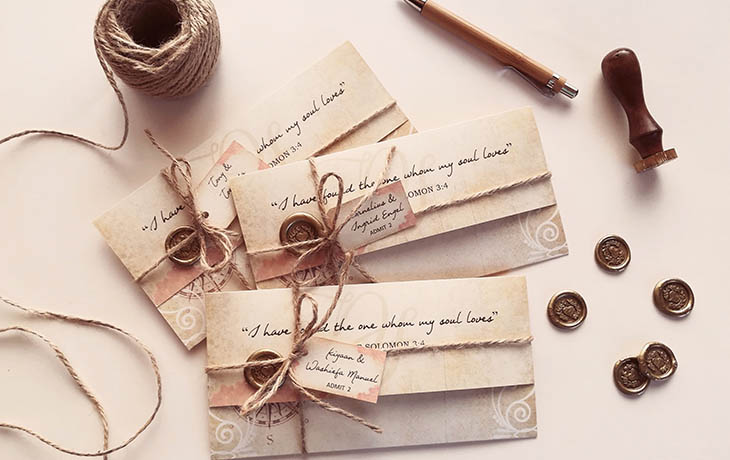 "I have
whom my soul loves"
SOLOMON 3:4
Tony &
"I have found the one whom my soul loves"
SOLOMON 3:4
Cornelius &
Ingrid Engel
ADMIT 2
"I have found the one whom my soul loves"
SOLOMON 3:4
Kiyaan &
Washiefa Manuel
ADMIT 2
S